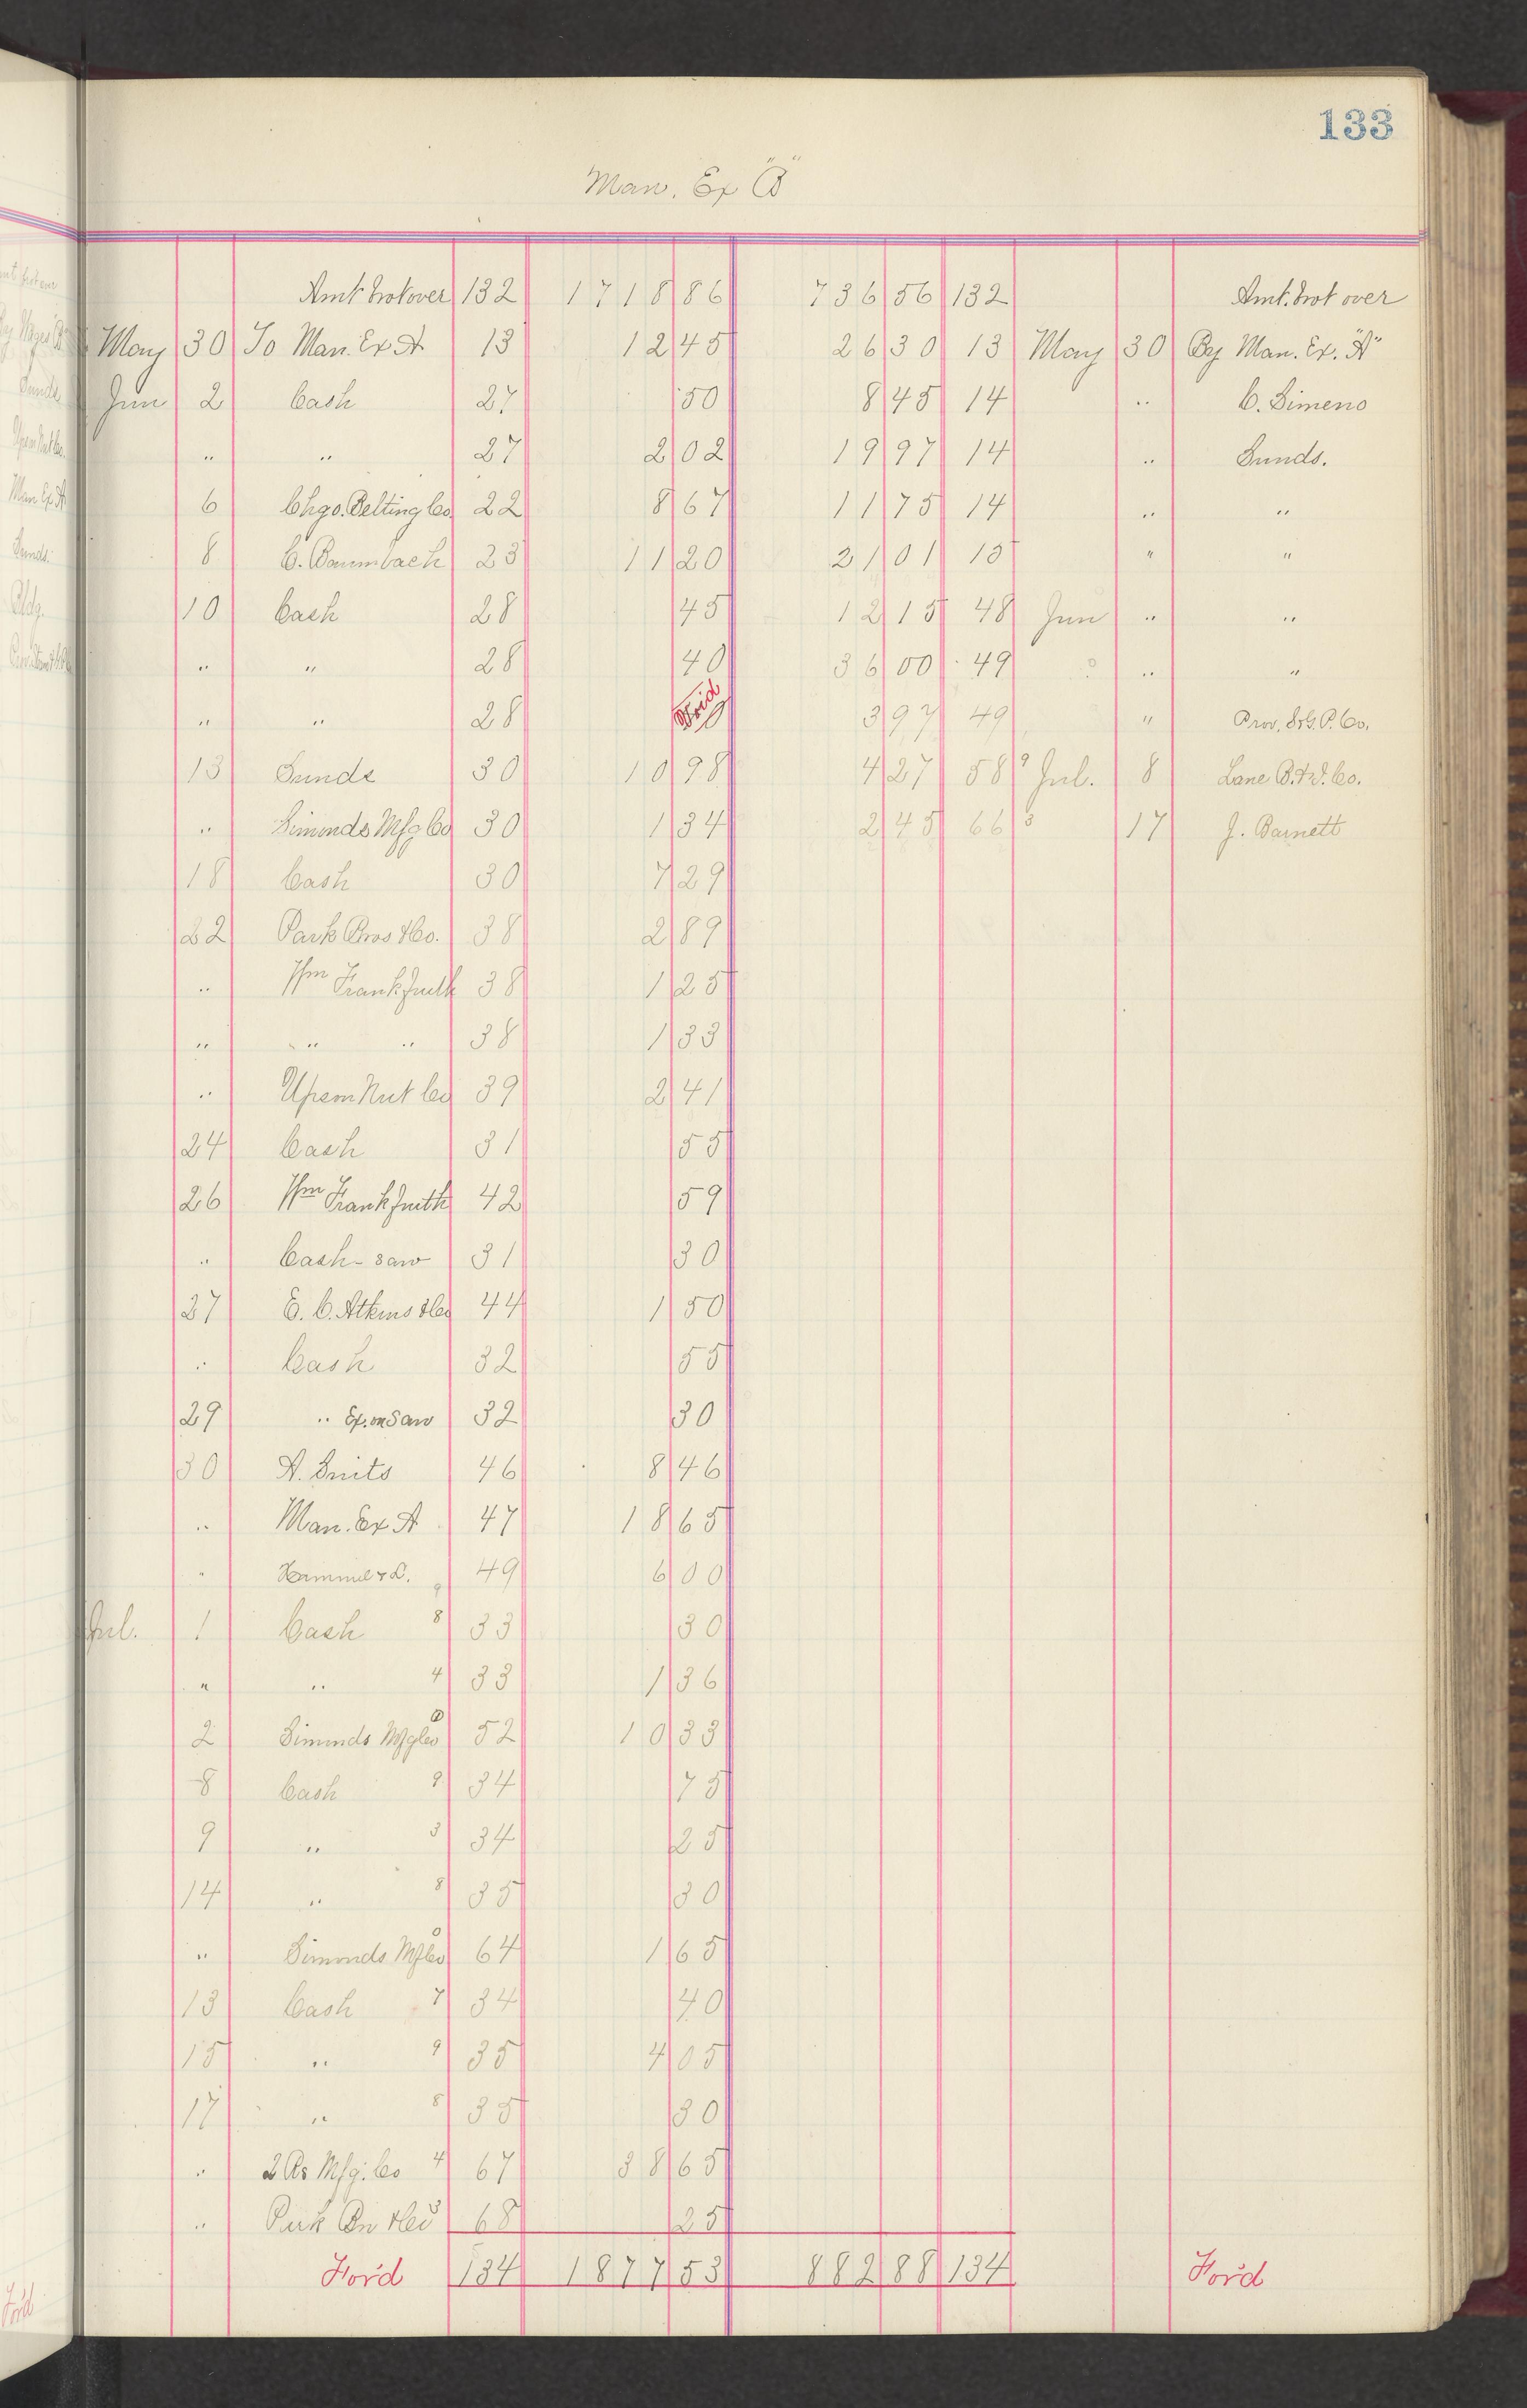 133
Man. Ex "B"
Amt brot over 132 1718 86 736 56 132 Amt. brot over
May 30 To Man. Ex A 13 12 45 26 30 13 May 30 By Man. Ex. "A"
Jun 2 Cash 27 50 8 45 14 " C. Simeno
" " 27 2 02 19 97 14 " Sunds.
6 Chgo. Belting Co 22 8 67 11 75 14 " "
8 C. Baumbach 23 11 20 21 01 15 " "
10 Cash 28 45 12 15 48 Jun " "
" " 28 40 36 00 49 " "
" " 28 Void 3 97 49 " Prov. P. Co.
13 Sunds 30 10 98 4 27 58 9 Jul. 8 Lane Co.
" Simonds Mfg Co 30 1 34 2 45 66 3 17 J. Barnett
18 Cash 30 7 29
22 Park Bros & Co. 38 2 89
" Wm Frankfurth 38 1 25
" " " 38 1 33
" Upson Nut Co 39 2 41
24 Cash 31 55
26 Wm Frankfurth 42 59
" Cash - saw 31 30
27 E. C. Atkins & Co 44 1 50
" Cash 32 55
29 " Ex. on Saw 32 30
30 A. Smits 46 8 46
" Man. Ex A 47 18 65
" Hammel & D. 49 6 00
Jul. 1 Cash 8 33 30
" " 4 33 1 36
2 Simonds Mfg Co 52 10 33
8 Cash 9 34 75
9 " 3 34 25
14 " 8 35 30
" Simonds Mf Co 64 1 65
13 Cash 7 34 40
15 " 9 35 4 05
17 " 8 35 30
" 2 Rs Mfg. Co 4 67 38 65
" Park Br & Co 68 25
For'd 134 1877 53 882 88 134 For'd